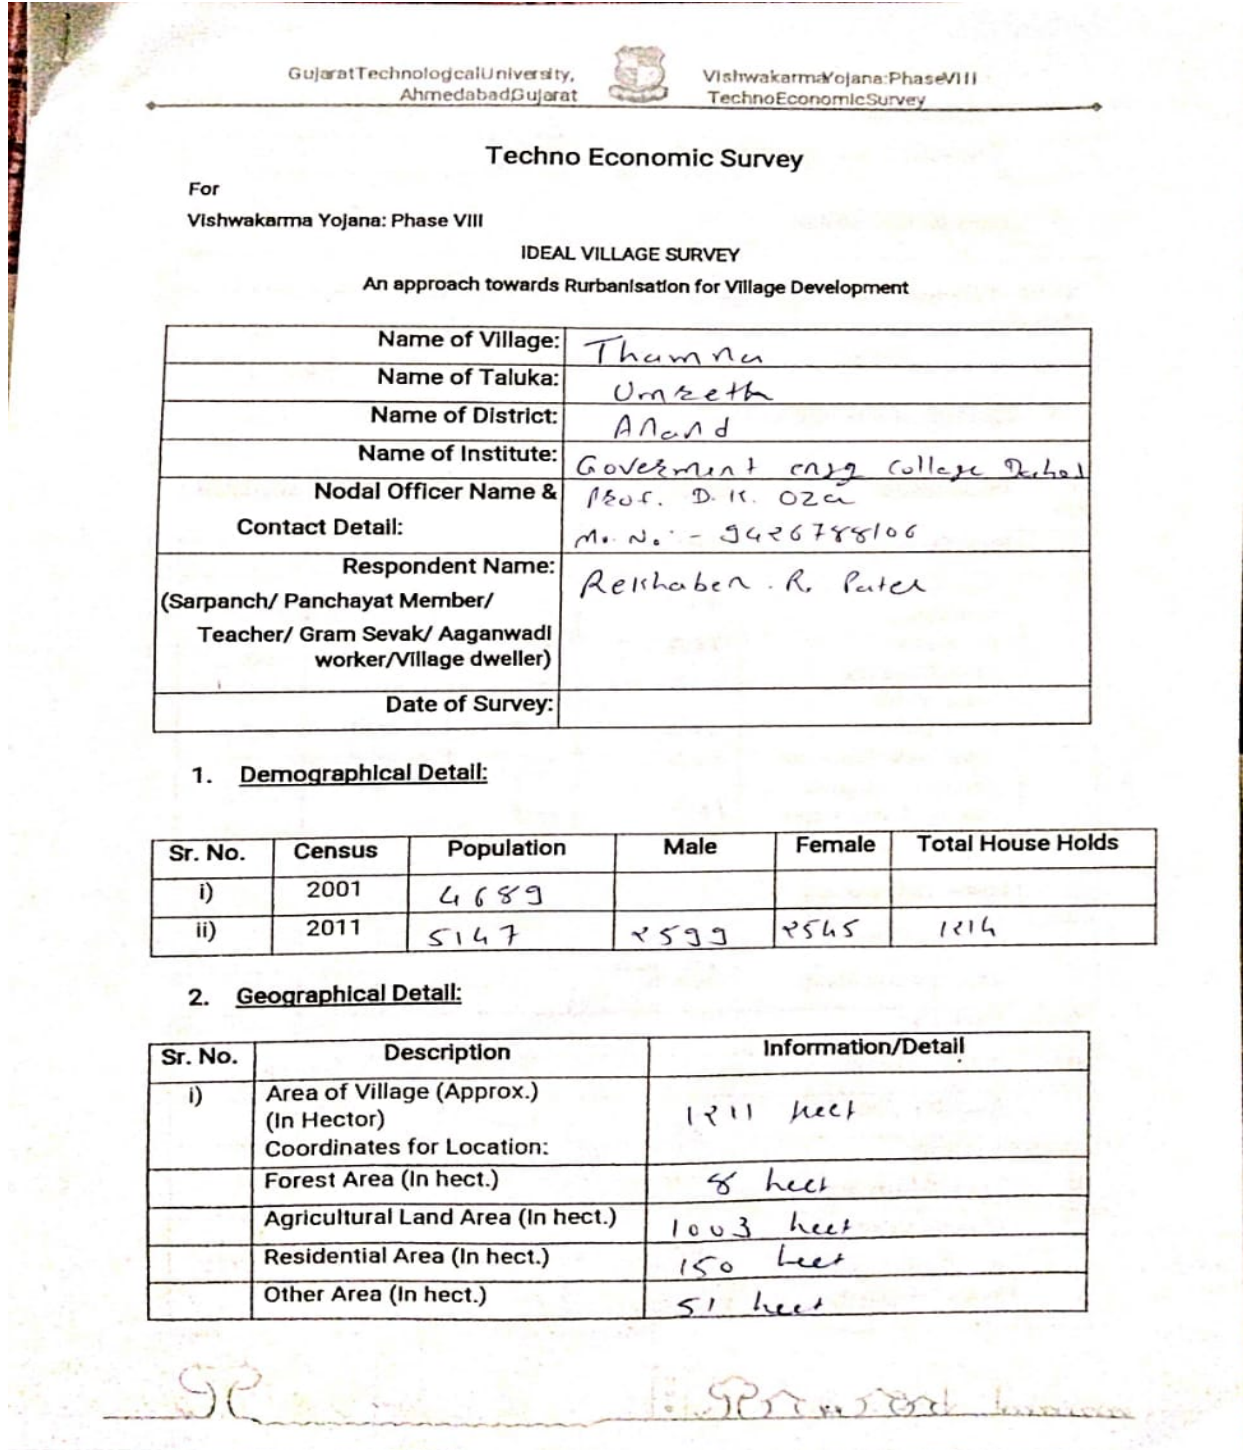 GujaratTechnologicalUniversity,
AhmedabadGujarat
VishwakarmaYojana:PhaseVIII
TechnoEconomicSurvey
Techno Economic Survey
For
Vishwakarma Yojana: Phase VIII
IDEAL VILLAGE SURVEY
An approach towards Rurbanisation for Village Development
Name of Village: Thamna
Name of Taluka: Umreth
Name of District: Anand
Name of Institute: Goverment engg College Dahod
Nodal Officer Name & Prof. D. K. Oza
Contact Detail: M. No. :- 9426788106
Respondent Name: Rekhaben . R. Patel
(Sarpanch/ Panchayat Member/
Teacher/ Gram Sevak/ Aaganwadi
worker/Village dweller)
Date of Survey:
1. Demographical Detail:
Sr. No. Census Population Male Female Total House Holds
i) 2001 4689
ii) 2011 5147 २599 २545 1२14
2. Geographical Detail:
Sr. No. Description Information/Detail
i) Area of Village (Approx.)
(In Hector) 1२11 hect
Coordinates for Location:
Forest Area (In hect.) 8 hect
Agricultural Land Area (In hect.) 1003 hect
Residential Area (In hect.) 150 hect
Other Area (In hect.) 51 hect